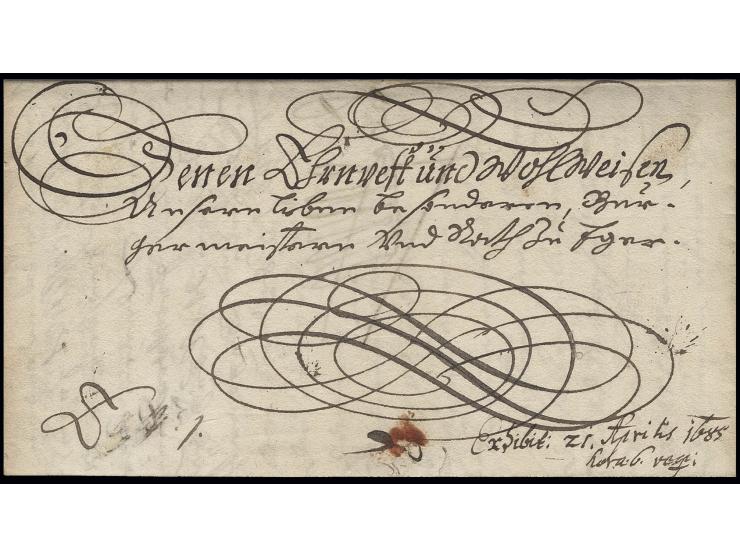 Denen Ehrnvest und Wohlweisen,
Unsern lieben besonderen, Bur-
germeistern Vnd Rath zu Eger.
1.
Exhibit: 21. Aprilis 1685
hora 6.